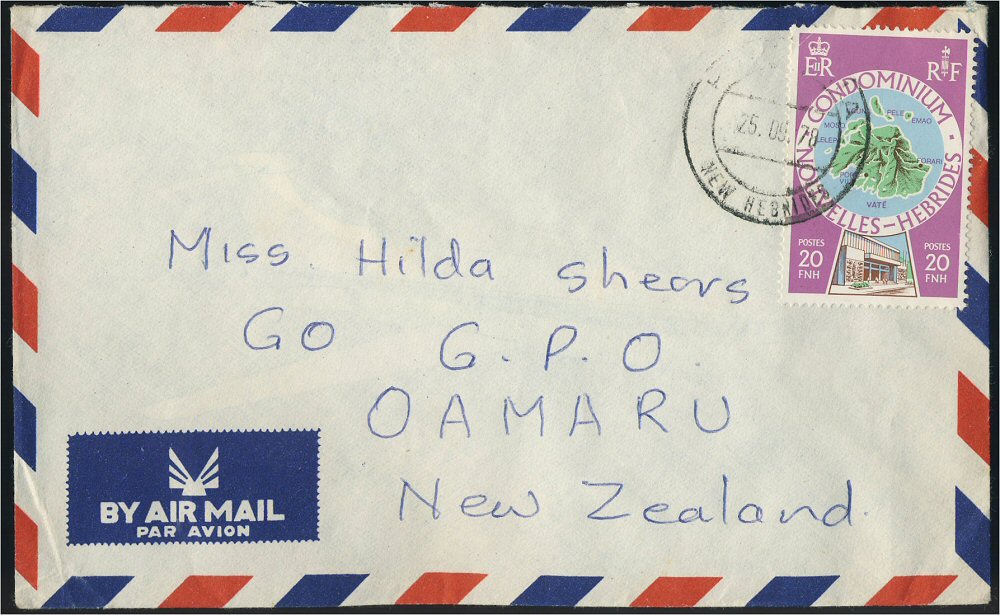 EIIR RF
CONDOMINIUM
NOUVELLES-HEBRIDES
PELE
EMAO
MOSO
LELEPA
FORARI
VATÉ
POSTES
20
FNH
POSTES
20
FNH
25. 09. 78
NEW HEBRIDES
Miss. Hilda shears
Go G.P.O.
OAMARU
New Zealand.
BY AIR MAIL
PAR AVION